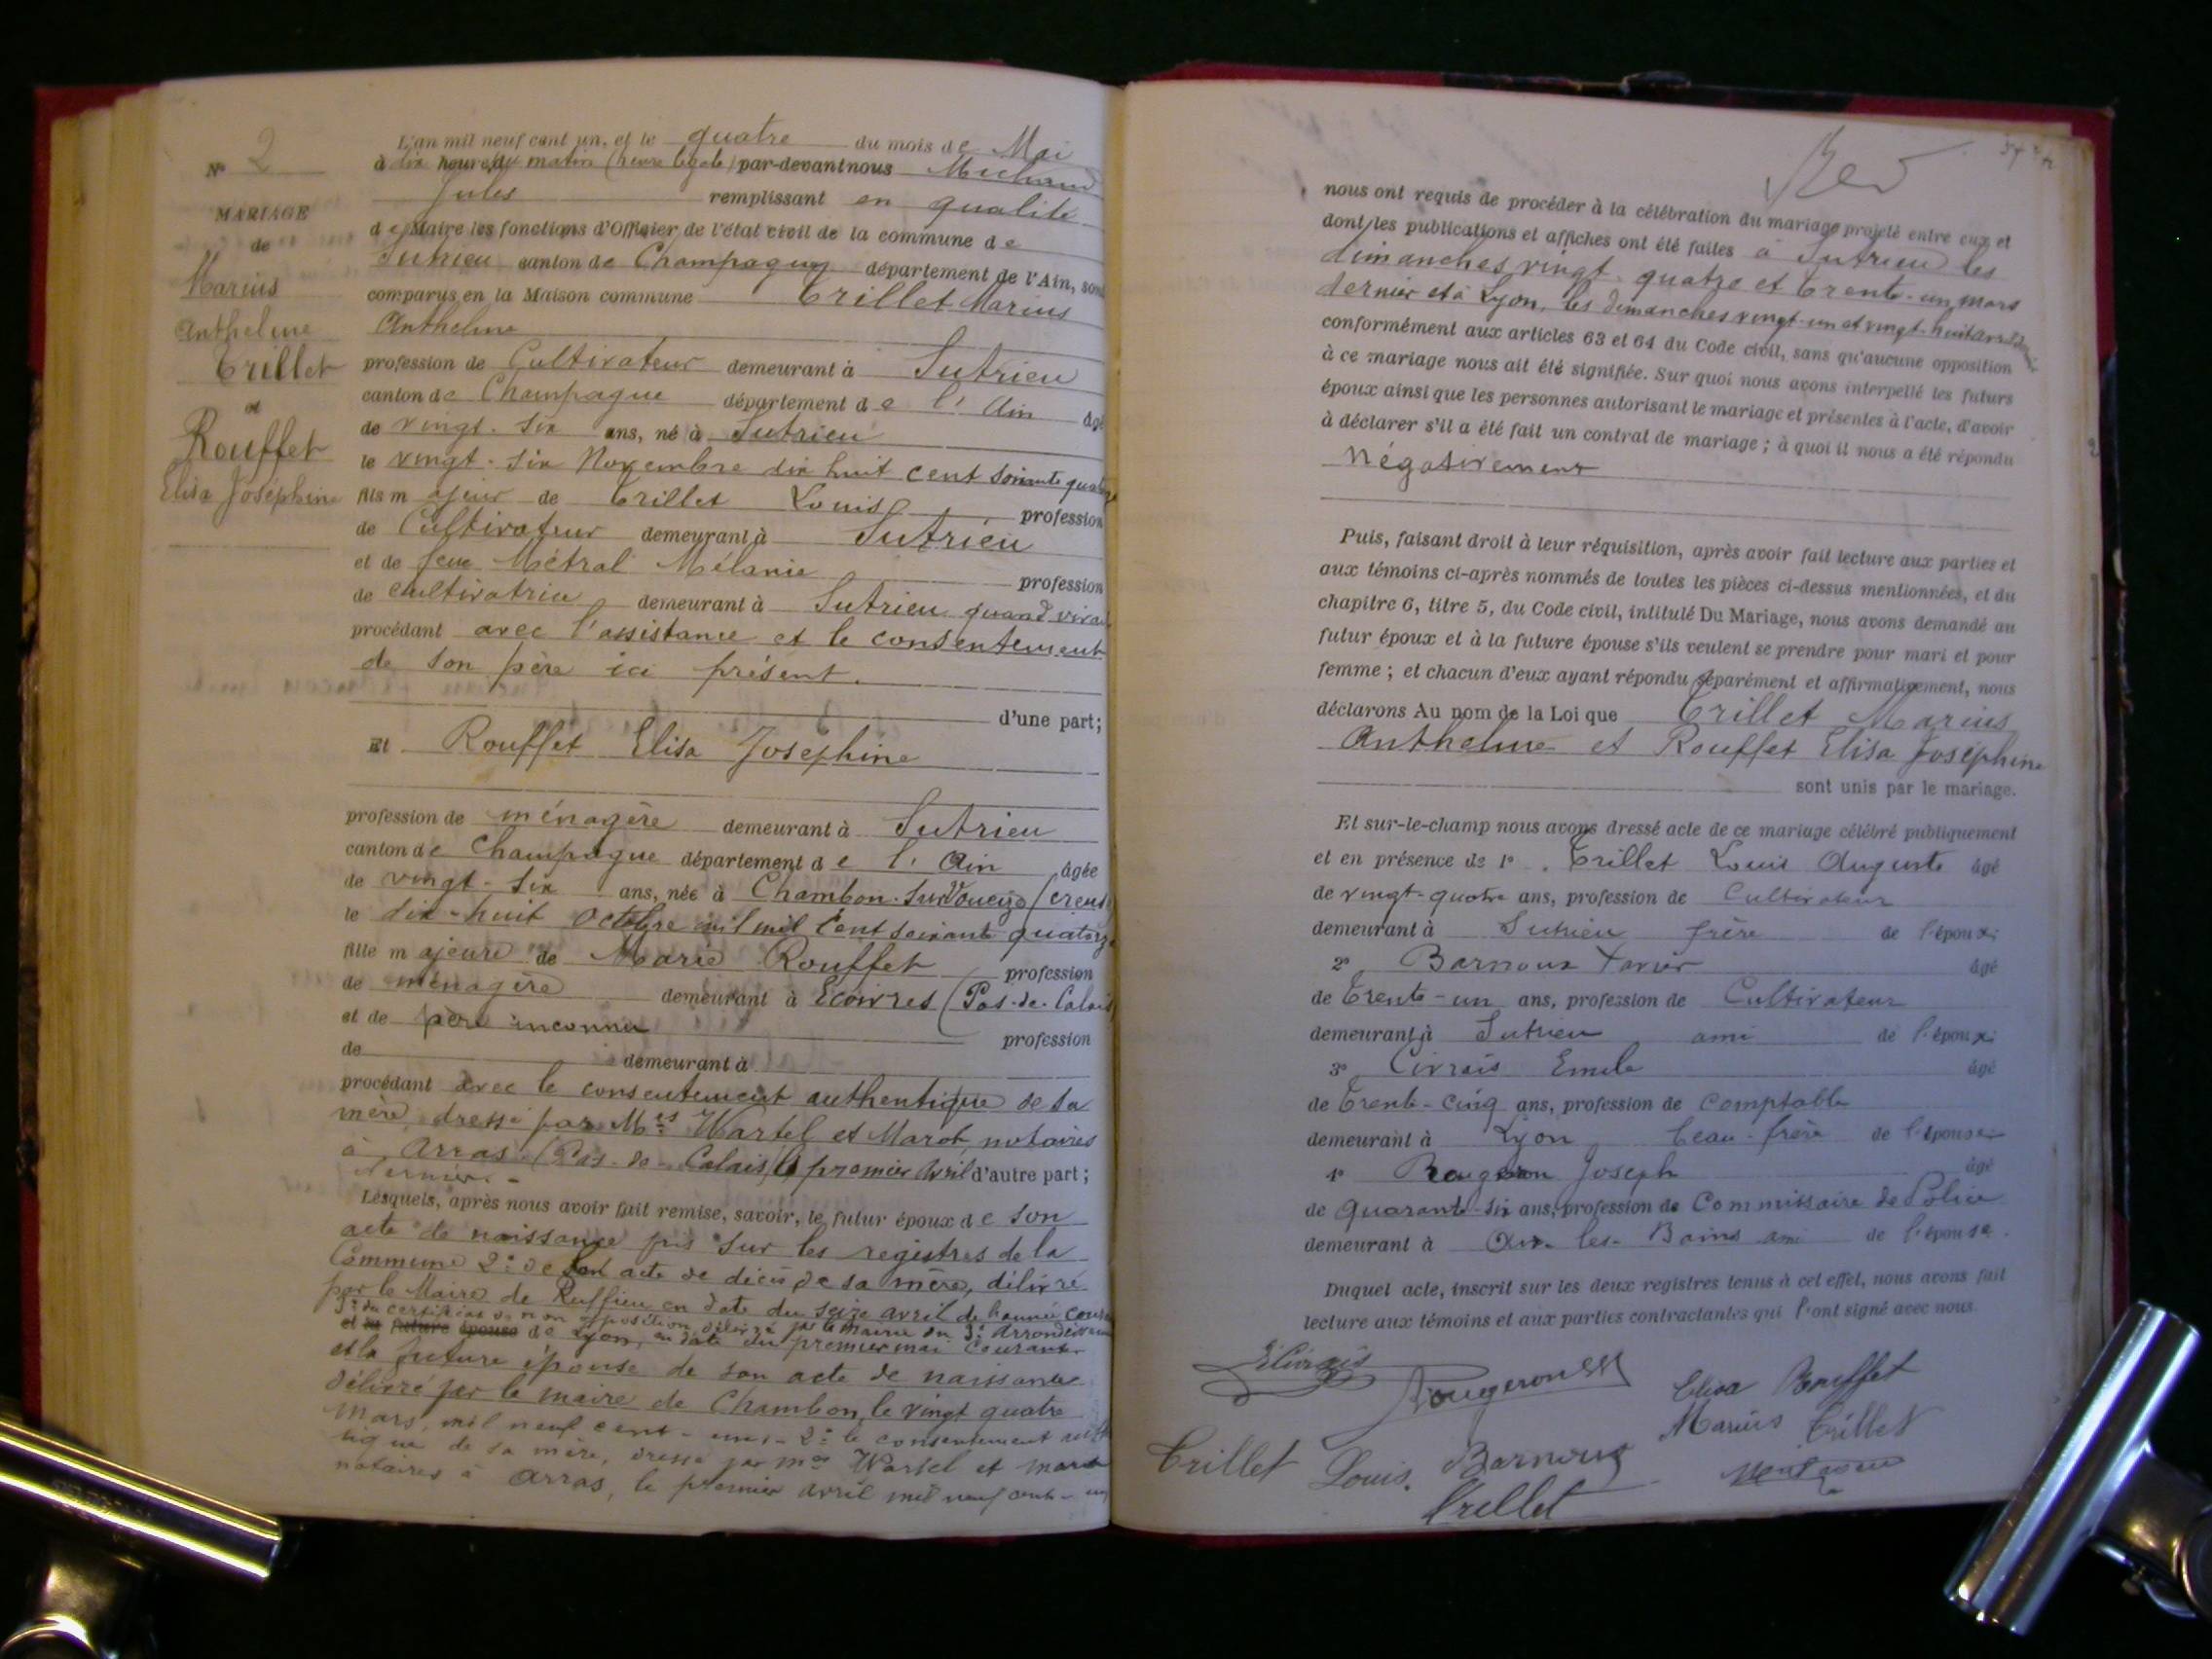 N° 2
MARIAGE
de
Marius
Anthelme
Trillet
et
Rouffet
Elisa Joséphine
L'an mil neuf cent un, et le quatre du mois de Mai
à dix heures du matin (heure légale) par-devant nous Michaud
Jules remplissant en qualité
de Maire les fonctions d'Officier de l'état civil de la commune de
Sutrieu canton de Champagne département de l'Ain, sont
comparus en la Maison commune Trillet Marius
Anthelme
profession de Cultivateur demeurant à Sutrieu
canton de Champagne département de l'Ain âgé
de vingt-six ans, né à Sutrieu
le vingt-six Novembre dix huit cent soixante quatorze
fils majeur de Trillet Louis profession
de Cultivateur demeurant à Sutrieu
et de feue Métral Mélanie profession
de cultivatrice demeurant à Sutrieu quand vivait
procédant avec l'assistance et le consentement
de son père ici présent.
d'une part;
Et Rouffet Elisa Josephine
profession de ménagère demeurant à Sutrieu
canton de Champagne département de l'Ain âgée
de vingt-six ans, née à Chambon-sur-Voueize (Creuse)
le dix-huit Octobre mil cent soixante quatorze
fille majeure de Marie Rouffet profession
de ménagère demeurant à Ecoivres (Pas-de-Calais)
et de père inconnu profession
de demeurant à
procédant avec le consentement authentique de sa
mère, dressé par Mes Wartel et Marot, notaires
à Arras (Pas-de-Calais) le premier Avril d'autre part;
dernier.-
Lesquels, après nous avoir fait remise, savoir, le futur époux de son
acte de naissance pris sur les registres de la
Commune 2° de son acte de décès de sa mère, délivré
par le Maire de Ruffieu en date du seize avril de l'année courante
3° du certificat de non opposition délivré par la Mairie du 3e Arrondissement
et la future épouse de Lyon, en date du premier mai Courant
et la future épouse de son acte de naissance
délivré par le maire de Chambon, le vingt quatre
Mars, mil neuf cent-un,- 2° le consentement authen
tique de sa mère, dressé par Mes Wartel et Marot
notaires à Arras, le premier avril mil neuf cent-un
nous ont requis de procéder à la célébration du mariage projeté entre eux et
dont les publications et affiches ont été faites à Sutrieu les
dimanches vingt-quatre et trente-un mars
dernier et à Lyon, les dimanches vingt-un et vingt-huit avril dernier
conformément aux articles 63 et 64 du Code civil, sans qu'aucune opposition
à ce mariage nous ait été signifiée. Sur quoi nous avons interpellé les futurs
époux ainsi que les personnes autorisant le mariage et présentes à l'acte, d'avoir
à déclarer s'il a été fait un contrat de mariage; à quoi il nous a été répondu
Négativement
Puis, faisant droit à leur réquisition, après avoir fait lecture aux parties et
aux témoins ci-après nommés de toutes les pièces ci-dessus mentionnées, et du
chapitre 6, titre 5, du Code civil, intitulé Du Mariage, nous avons demandé au
futur époux et à la future épouse s'ils veulent se prendre pour mari et pour
femme; et chacun d'eux ayant répondu séparément et affirmativement, nous
déclarons Au nom de la Loi que Trillet Marius
Anthelme et Rouffet Elisa Josephine
sont unis par le mariage.
Et sur-le-champ nous avons dressé acte de ce mariage célébré publiquement
et en présence de 1° Trillet Louis Auguste âgé
de vingt-quatre ans, profession de Cultivateur
demeurant à Sutrieu frère de l'époux;
2° Barnoux Xavier âgé
de Trente-un ans, profession de Cultivateur
demeurant à Sutrieu ami de l'époux;
3° Civrais Emile âgé
de Trente-cinq ans, profession de Comptable
demeurant à Lyon beau-frère de l'épouse
4° Rougeron Joseph âgé
de quarante-six ans, profession de Commissaire de Police
demeurant à Aix-les-Bains ami de l'épouse.
Duquel acte, inscrit sur les deux registres tenus à cet effet, nous avons fait
lecture aux témoins et aux parties contractantes qui l'ont signé avec nous.
ECivrais
Rougeron
Elisa Rouffet
Marius Trillet
Trillet Louis. Barnoux
Trillet